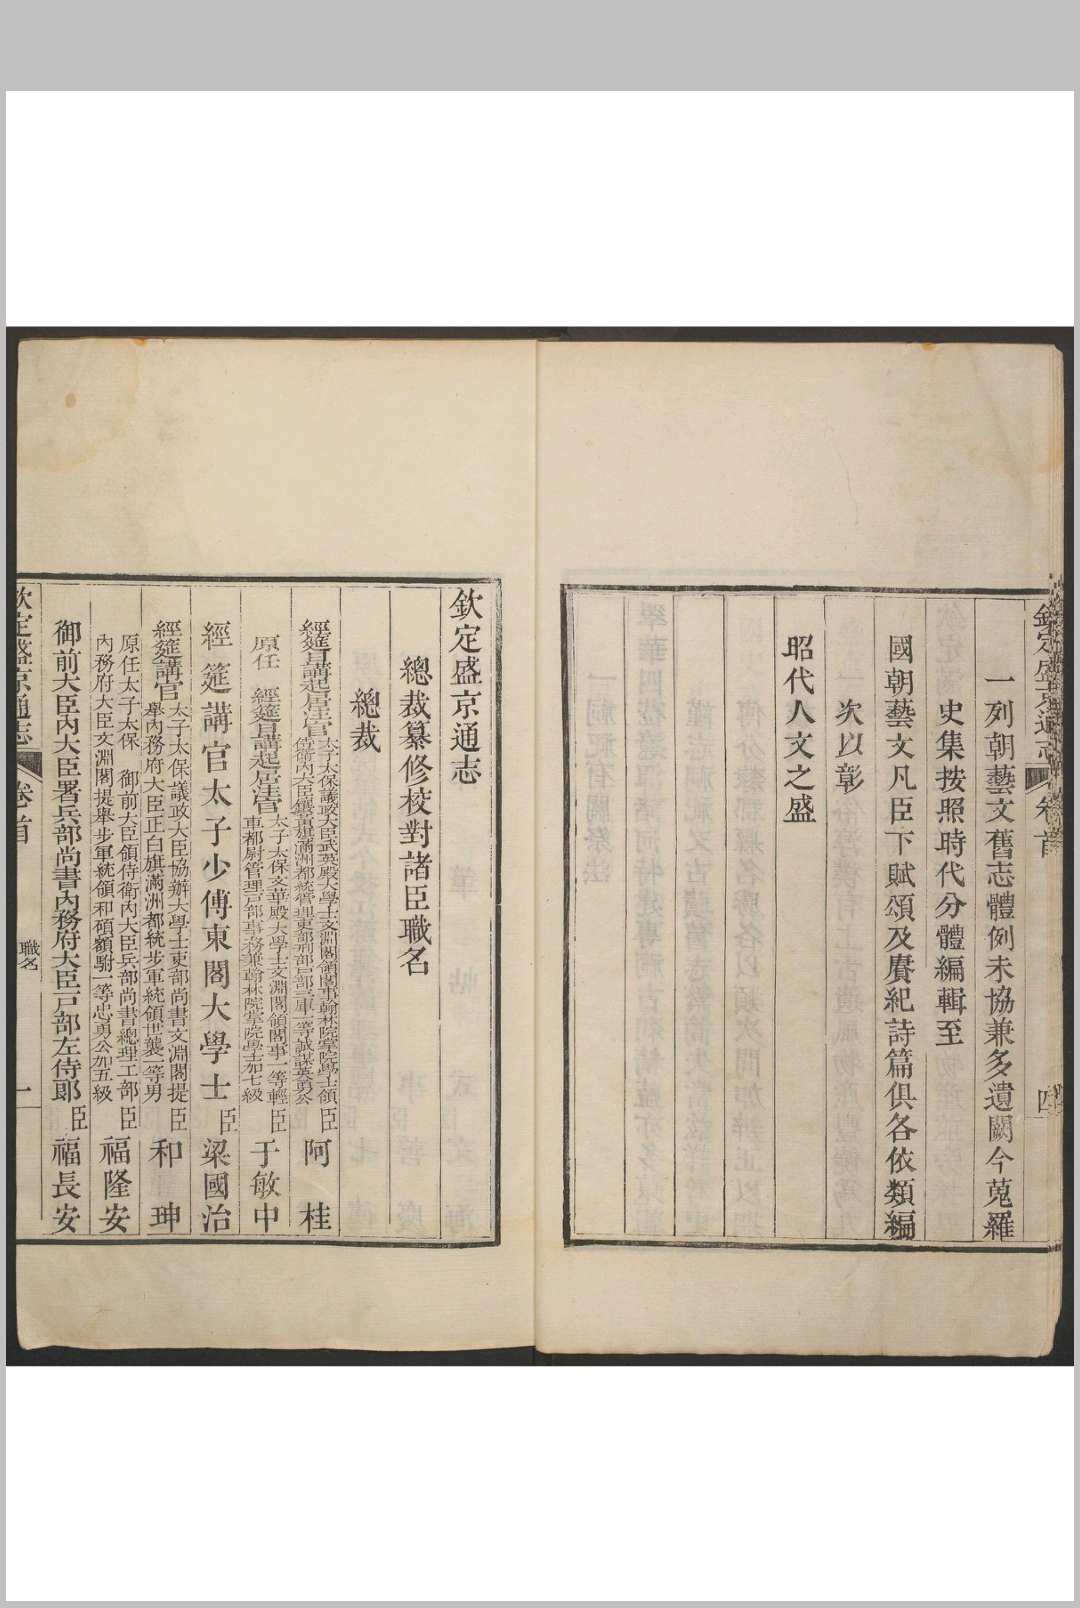 欽定盛京通志
卷首
四
一列朝藝文舊志體例未協兼多遺闕今蒐羅
史集按照時代分體編輯至
國朝藝文凡臣下賦頌及賡紀詩篇俱各依類編
次以彰
昭代人文之盛
欽定盛京通志
總裁纂修校對諸臣職名
總裁
經筵日講起居注官太子太保議政大臣武英殿大學士文淵閣領閣事翰林院掌院學士領
侍衛內大臣鑲黃旗滿洲都統管理吏部刑部戶部三庫一等誠謀英勇公臣阿桂
原任 經筵日講起居注官太子太保文華殿大學士文淵閣領閣事一等輕
車都尉管理戶部事務兼翰林院掌院學士加七級臣于敏中
經筵講官太子少傅東閣大學士臣梁國治
經筵講官太子太保議政大臣協辦大學士吏部尚書文淵閣提
舉內務府大臣正白旗滿洲都統步軍統領世襲一等男臣和珅
原任太子太保 御前大臣領侍衛內大臣兵部尚書總理工部
內務府大臣文淵閣提舉步軍統領和碩額駙一等忠勇公加五級臣福隆安
御前大臣內大臣署兵部尚書內務府大臣戶部左侍郎臣福長安
欽定盛京通志
卷首
職名
一